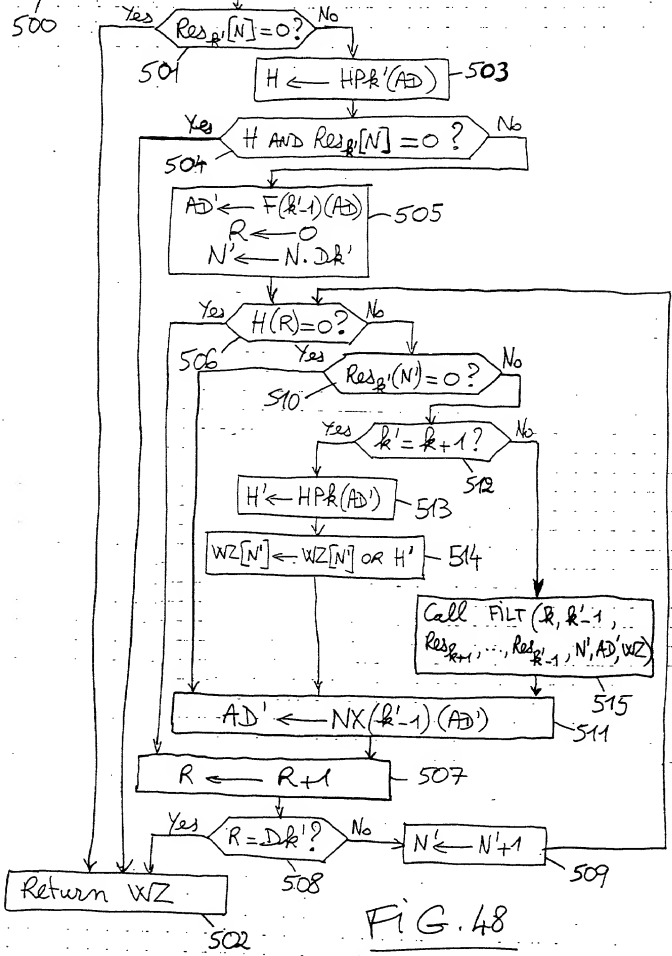 500
Yes
Res_k'[N]=0?
No
501
H ← HPk'(AD)
503
Yes
H AND Res_k'[N] = 0 ?
No
504
AD' ← F(k'-1)(AD)
R ← 0
N' ← N.Dk'
505
Yes
H(R)=0?
No
506
Yes
Res_k'(N')=0?
No
510
Yes
k'=k+1?
No
512
H' ← HPk(AD')
513
WZ[N'] ← WZ[N'] OR H'
514
Call FILT(k, k'-1,
Res_k+1, ..., Res_k'-1, N', AD', WZ)
515
AD' ← NX(k'-1)(AD')
511
R ← R+1
507
Yes
R=Dk'?
No
508
N' ← N'+1
509
Return WZ
502
FIG. 48